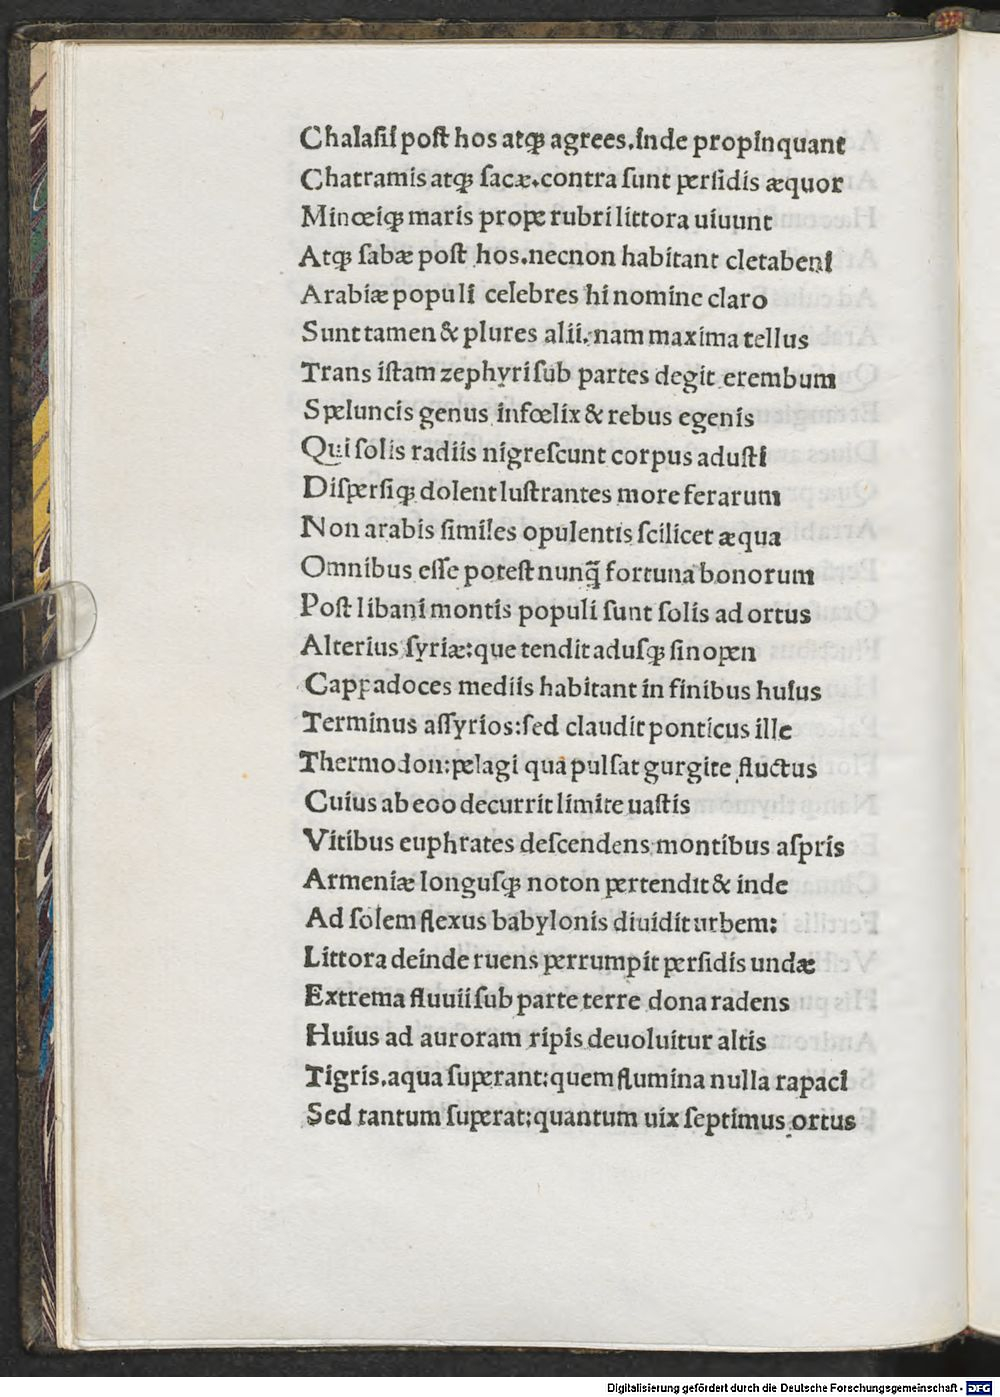 Chalaſii poſt hos atqꝫ agrees.inde propinquant
Chatramis atqꝫ ſacæ.contra ſunt perſidis æquor
Minœiqꝫ maris prope rubri littora uiuunt
Atqꝫ ſabæ poſt hos.necnon habitant cletabeni
Arabiæ populi celebres hi nomine claro
Sunt tamen & plures alii.nam maxima tellus
Trans iſtam zephyri ſub partes degit erembum
Speluncis genus infœlix & rebus egenis
Qui ſolis radiis nigreſcunt corpus aduſti
Diſperſiqꝫ dolent luſtrantes more ferarum
Non arabis ſimiles opulentis ſcilicet æqua
Omnibus eſſe poteſt nunq̄ fortuna bonorum
Poſt libani montis populi ſunt ſolis ad ortus
Alterius ſyriæ:que tendit aduſqꝫ ſinopen
Cappadoces mediis habitant in finibus huius
Terminus aſſyrios:ſed claudit ponticus ille
Thermodon:pelagi qua pulſat gurgite fluctus
Cuius ab eoo decurrit limite uaſtis
Vitibus euphrates deſcendens montibus aſpris
Armeniæ longuſqꝫ noton pertendit & inde
Ad ſolem flexus babylonis diuidit urbem:
Littora deinde ruens perrumpit perſidis undæ
Extrema fluuii ſub parte terre dona radens
Huius ad auroram ripis deuoluitur altis
Tigris.aqua ſuperant:quem flumina nulla rapaci
Sed tantum ſuperat:quantum uix ſeptimus ortus
Digitalisierung gefördert durch die Deutsche Forschungsgemeinschaft - DFG